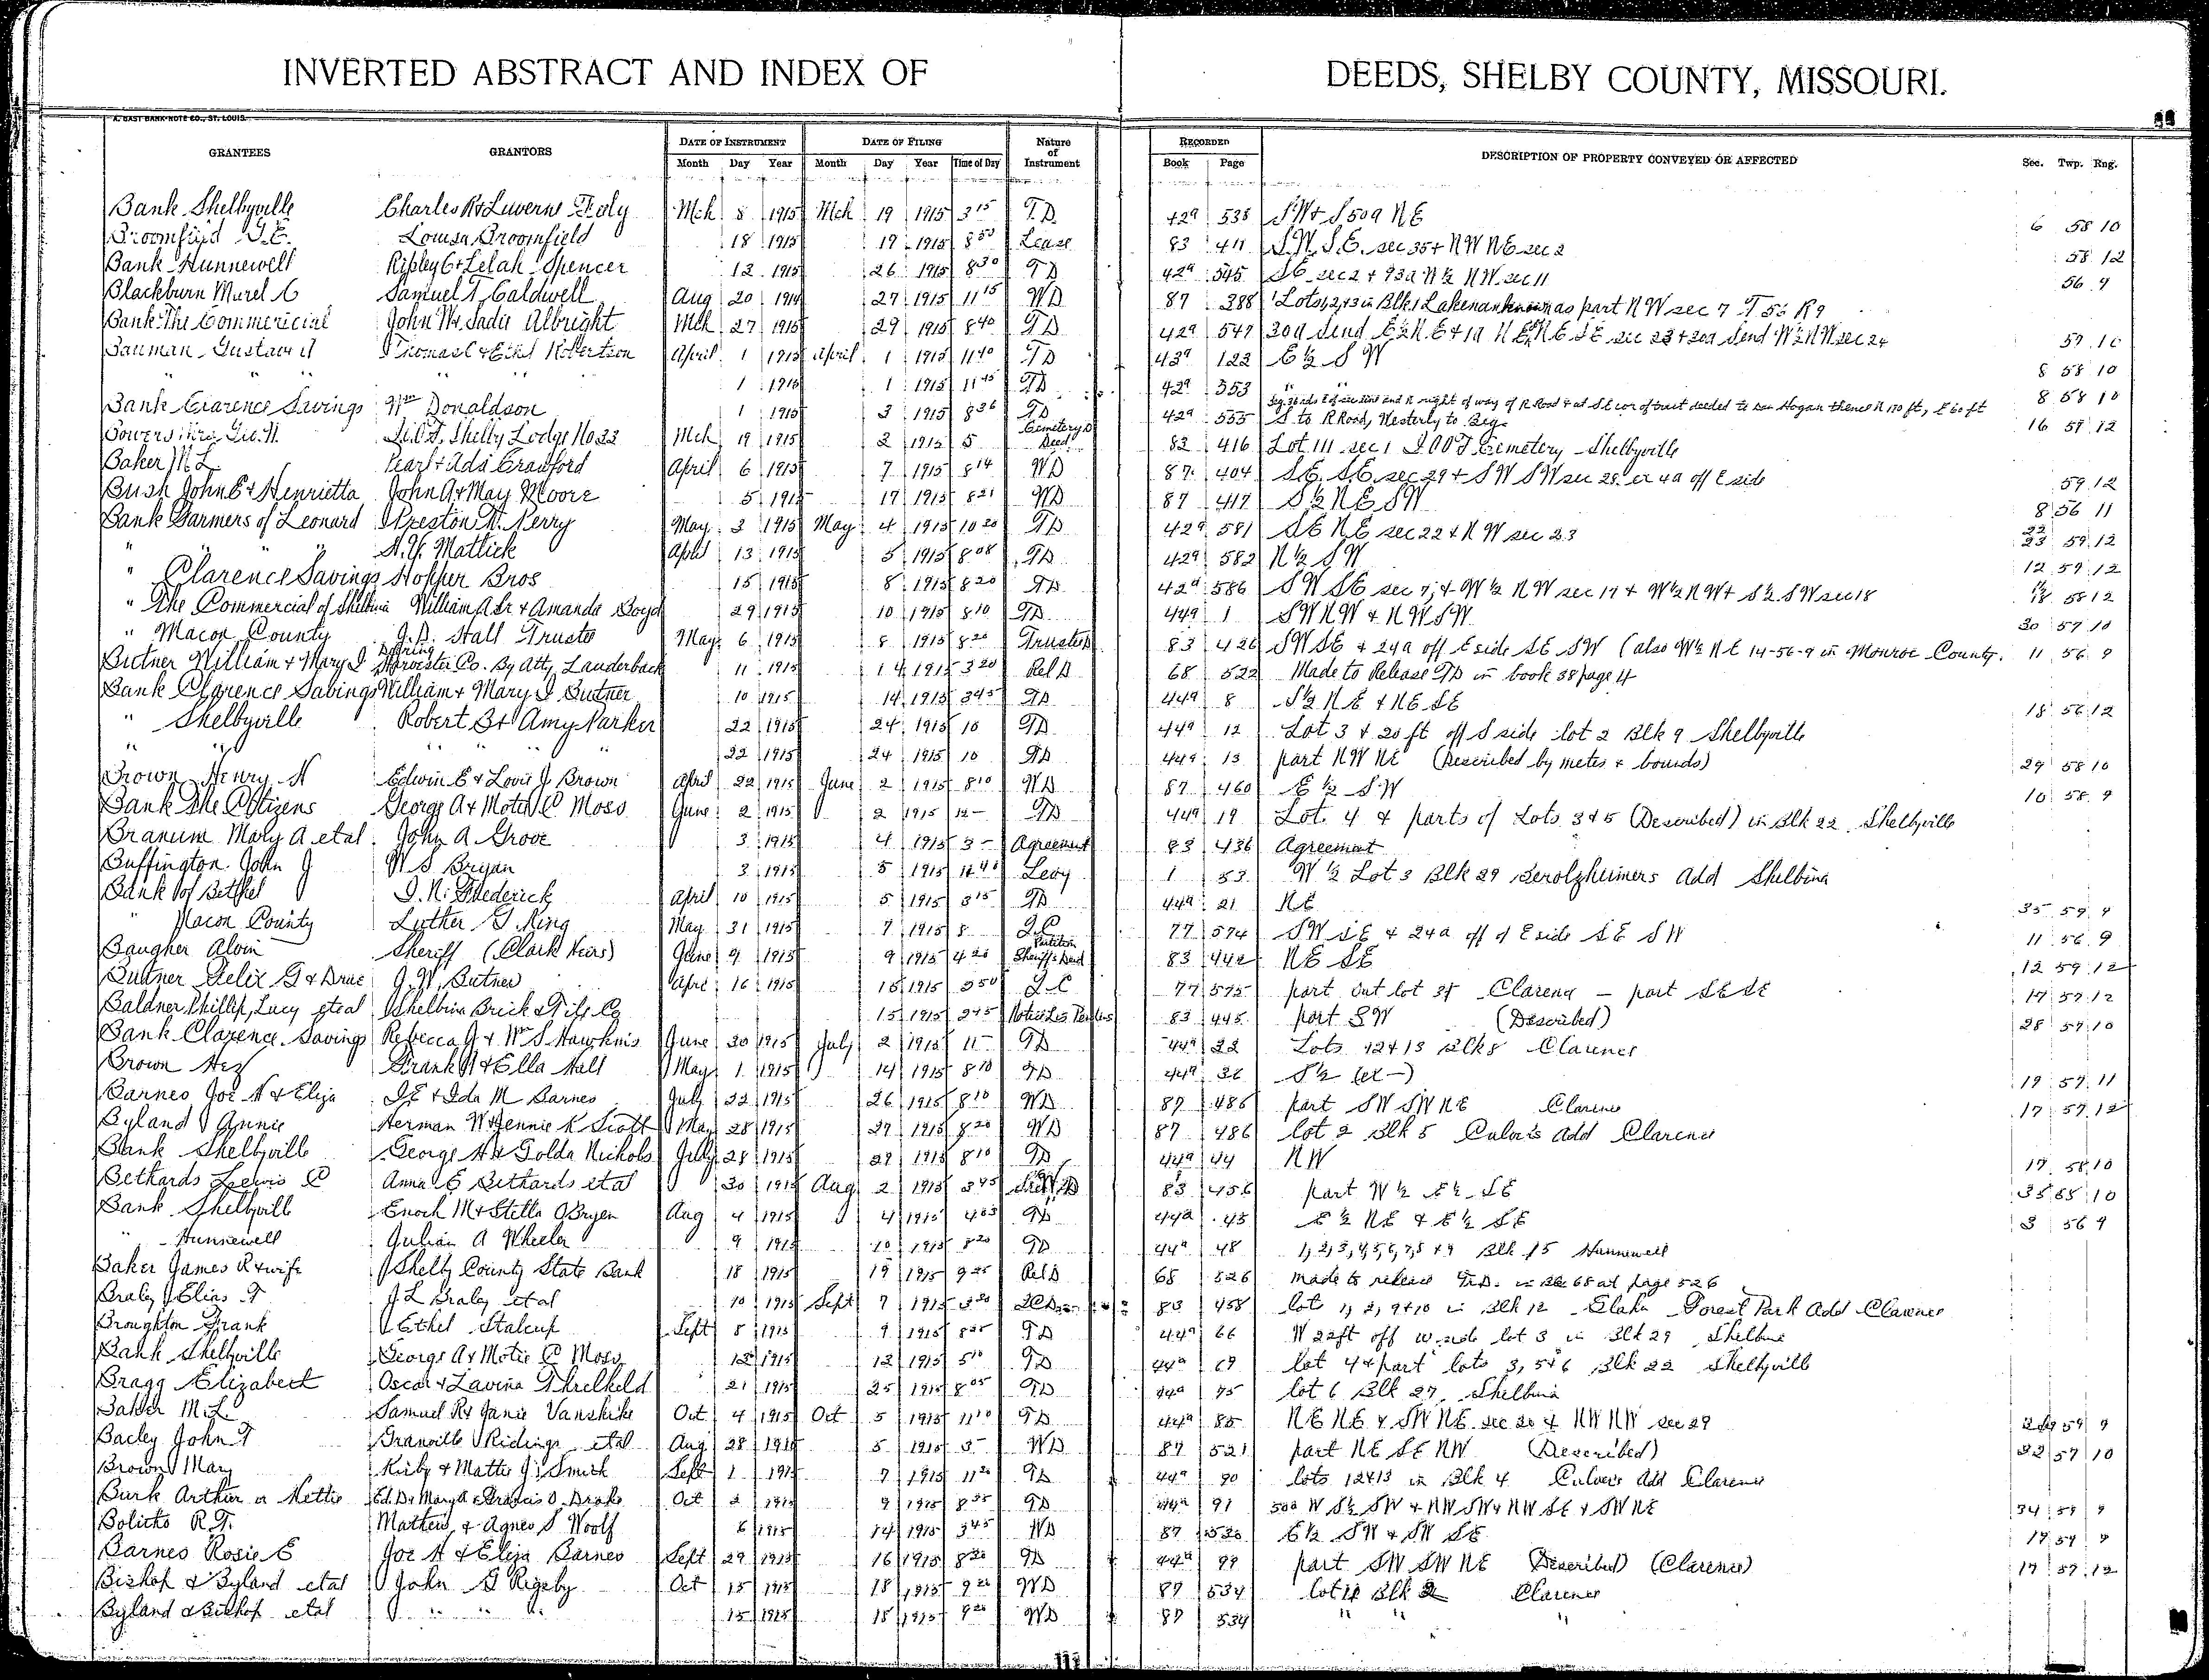 INVERTED ABSTRACT AND INDEX OF DEEDS, SHELBY COUNTY, MISSOURI.
A. GAST BANK-NOTE CO., ST. LOUIS.
GRANTEES GRANTORS DATE OF INSTRUMENT DATE OF FILING Nature of Instrument RECORDED DESCRIPTION OF PROPERTY CONVEYED OR AFFECTED Sec. Twp. Rng.
Month Day Year Month Day Year Time of Day Book Page
Bank Shelbyville Charles R & Luverne Foly Mch 8 1915 Mch 19 1915 3 15 T.D. 42a 538 SW & S 50a NE 6 58 10
Broomfield G.E. Louisa Broomfield 18 1915 19 1915 8 50 Lease 83 411 S.W. S.E. sec 35 & NW NE sec 2 58 12
Bank Hunnewell Ripley C & Lelah Spencer 12 1915 26 1915 8 30 TD 42a 545 SE sec 2 & 93a N½ NW sec 11 56 9
Blackburn Murel C Samuel T. Caldwell Aug 20 1914 27 1915 11 15 WD 87 388 Lots 1, 2, & 3 in Blk 1 Lakenan known as part NW sec 7 T 56 R 9
Bank The Commericial John W & Sadie Albright Mch 27 1915 29 1915 8 40 TD 42a 547 30a Send E½ N.E & 1a NE NE SE sec 23 & 20a Send W½ NW sec 24 59 10
Bauman Gustave A Thomas L & Ethel Robertson April 1 1915 April 1 1915 11 40 TD 43a 122 E½ SW 8 58 10
" " " " 1 1915 1 1915 11 45 TD 42a 553 " " 8 58 10
Bank Clarence Savings Wm Donaldson 1 1915 3 1915 8 36 TD 42a 555 S to R Road, Westerly to Beg. 16 57 12
Bowers Mrs. Geo. W. I.O.O.F. Shelby Lodge No 33 Mch 19 1915 2 1915 5 Cemetery D Deed 83 416 Lot 111 sec 1 I.O.O.F Cemetery Shelbyville
Baker M L Pearl & Ada Crawford April 6 1915 7 1915 8 14 WD 87 404 S.E. S.E. sec 29 & SW SW sec 28 ex 4a off E side 59 12
Bush John E & Henrietta John A & May Moore 5 1915 17 1915 8 21 WD 87 417 S½ NE SW 8 56 11
Bank Farmers of Leonard Preston W. Perry May 3 1915 May 4 1915 10 20 TD 42a 581 SE NE sec 22 & NW sec 23 22 23 59 12
" " " " A.Y. Mattick April 13 1915 5 1915 8 08 TD 42a 582 N½ SW 12 59 12
" Clarence Savings Hopper Bros 15 1915 8 1915 8 20 TD 42a 586 SW SE sec 7, & W½ NW sec 17 & W½ NW & S½ SW sec 18 18 58 12
" The Commercial of Shelbina William A Sr & Amanda Boyd 29 1915 10 1915 8 10 TD 44a 1 SW NW & NW SW 30 57 10
" Macon County J.D. Hall Trustee May 6 1915 8 1915 8 20 Trustee D 83 426 SW SE & 24a off E side SE SW (also W½ NE 14-56-9 in Monroe County. 11 56 9
Butner William & Mary J Deering Harvester Co. By Atty Lauderback 11 1915 14 1915 3 20 Rel D 68 522 Made to Release TD in book 38 page 4
Bank Clarence Savings William & Mary J Butner 10 1915 14 1915 3 45 TD 44a 8 S½ NE & NE SE 18 56 12
" Shelbyville Robert B & Amy Parker 22 1915 24 1915 10 TD 44a 12 Lot 3 & 20 ft off S side lot 2 Blk 9 Shelbyville
" " " " " 22 1915 24 1915 10 TD 44a 13 part NW NE (Described by metes & bounds) 29 58 10
Brown Henry H Edwin E & Lovie J Brown April 22 1915 June 2 1915 8 10 WD 87 460 E½ SW 10 58 9
Bank The Citizens George A & Motie C Moss June 2 1915 2 1915 12 - TD 44a 19 Lot 4 & parts of Lots 3 & 5 (Described) in Blk 22 Shelbyville
Branum Mary A etal John A Grove 3 1915 4 1915 3 - Agreement 83 436 Agreement
Buffington John J W S Bryan 3 1915 5 1915 11 40 Levy 1 53 W½ Lot 3 Blk 29 Berolzheimers Add Shelbina
Bank of Bethel J. N. Frederick April 10 1915 5 1915 8 15 TD 44a 21 NE 35 59 9
" Macon County Luther G King May 31 1915 7 1915 8 Q.C 77 574 SW SE & 24a off of E side SE SW 11 56 9
Baugher Alvin Sheriff (Clark Heirs) June 9 1915 9 1915 4 20 Partition Sheriffs Deed 83 442 NE SE 12 59 12
Butner Felix G & Drue J. W. Butner April 16 1915 15 1915 3 50 Q C 77 575 part out lot 37 Clarence - part SE SE 17 57 12
Baldner, Phillip, Lucy etal Shelbina Brick & Tile Co 15 1915 2 45 Notice Lis Pendens 83 445 part SW (Described) 28 57 10
Bank Clarence Savings Rebecca J & Wm S Hawkins June 30 1915 July 2 1915 11 - TD 44a 22 Lots 12 & 13 Blk 8 Clarence
Brown Hez Frank A & Ella Hall May 1 1915 14 1915 8 10 TD 44a 36 S½ (ex -) 19 57 11
Barnes Joe H & Eliza J E & Ida M Barnes July 22 1915 26 1915 8 10 WD 87 486 part SW SW NE Clarence 17 57 12
Byland Annie Herman W & Jennie K Scott May 28 1915 27 1915 8 20 WD 87 486 lot 2 Blk 5 Culvers Add Clarence
Bank Shelbyville George H & Golda Nichols July 28 1915 29 1915 8 10 TD 44a 44 NW 17 58 10
Bethards Lewis C Anna E Bethards etal 30 1915 Aug 2 1915 3 45 83 456 part W½ E½ SE 35 58 10
Bank Shelbyville Enoch M & Stella O'Bryen Aug 4 1915 4 1915 4 05 TD 44a 45 E½ NE & E½ SE 3 56 9
" Hunnewell Julian A Wheeler 9 1915 10 1915 8 20 TD 44a 48 1, 2, 3, 4, 5, 6, 7, 8 & 9 Blk 15 Hunnewell
Baker James R & wife Shelby County State Bank 18 1915 19 1915 9 25 Rel D 68 526 made to release T.D. in Bk 68 at page 526
Braley Elias F J L Braley etal 10 1915 Sept 7 1915 3 30 QCD 83 458 lot 1, 2, 9 & 10 in Blk 12 Forest Park Add Clarence
Broughton Frank Ethel Stalcup Sept 8 1915 9 1915 8 35 TD 44a 66 W 22ft off w side lot 3 in Blk 29 Shelbina
Bank Shelbyville George A & Motie C Moss 13 1915 13 1915 5 10 TD 44a 69 lot 4 & part lots 3, 5 & 6 Blk 22 Shelbyville
Bragg Elizabeth Oscar & Lavina Threlkeld 21 1915 25 1915 8 05 TD 44a 75 lot 6 Blk 27 Shelbina
Baker M. L Samuel R & Janie Vanskike Oct 4 1915 Oct 5 1915 11 10 TD 44a 85 NE NE & SW NE sec 20 & NW NW sec 29 59 9
Bacley John F Granville Ridings etal Aug 28 1915 5 1915 3 - WD 87 521 part NE SE NW (Described) 32 57 10
Brown Mary Kirby & Mattie J. Smick Sept 1 1915 7 1915 11 20 TD 44a 90 lots 12 & 13 in Blk 4 Culvers Add Clarence
Burk Arthur or Nettie Ed. D & Mary A & Francis O. Drake Oct 2 1915 9 1915 8 35 TD 44a 91 50a W S½ SW & NW SW & NW SE & SW NE 34 59 9
Bolicks R. F. Mathew & Agnes S Woolf 6 1915 14 1915 3 45 WD 87 530 E½ SW & SW SE 17 59 9
Barnes Rosie E Joe H & Eliza Barnes Sept 29 1915 16 1915 8 30 TD 44a 99 part SW SW NE (Described) (Clarence) 17 57 12
Bishop & Byland etal John G Rigsby Oct 15 1915 18 1915 9 20 WD 87 534 lot 14 Blk 2 Clarence
Byland & Bishop etal " " " 15 1915 18 1915 9 20 WD 87 534 " " "